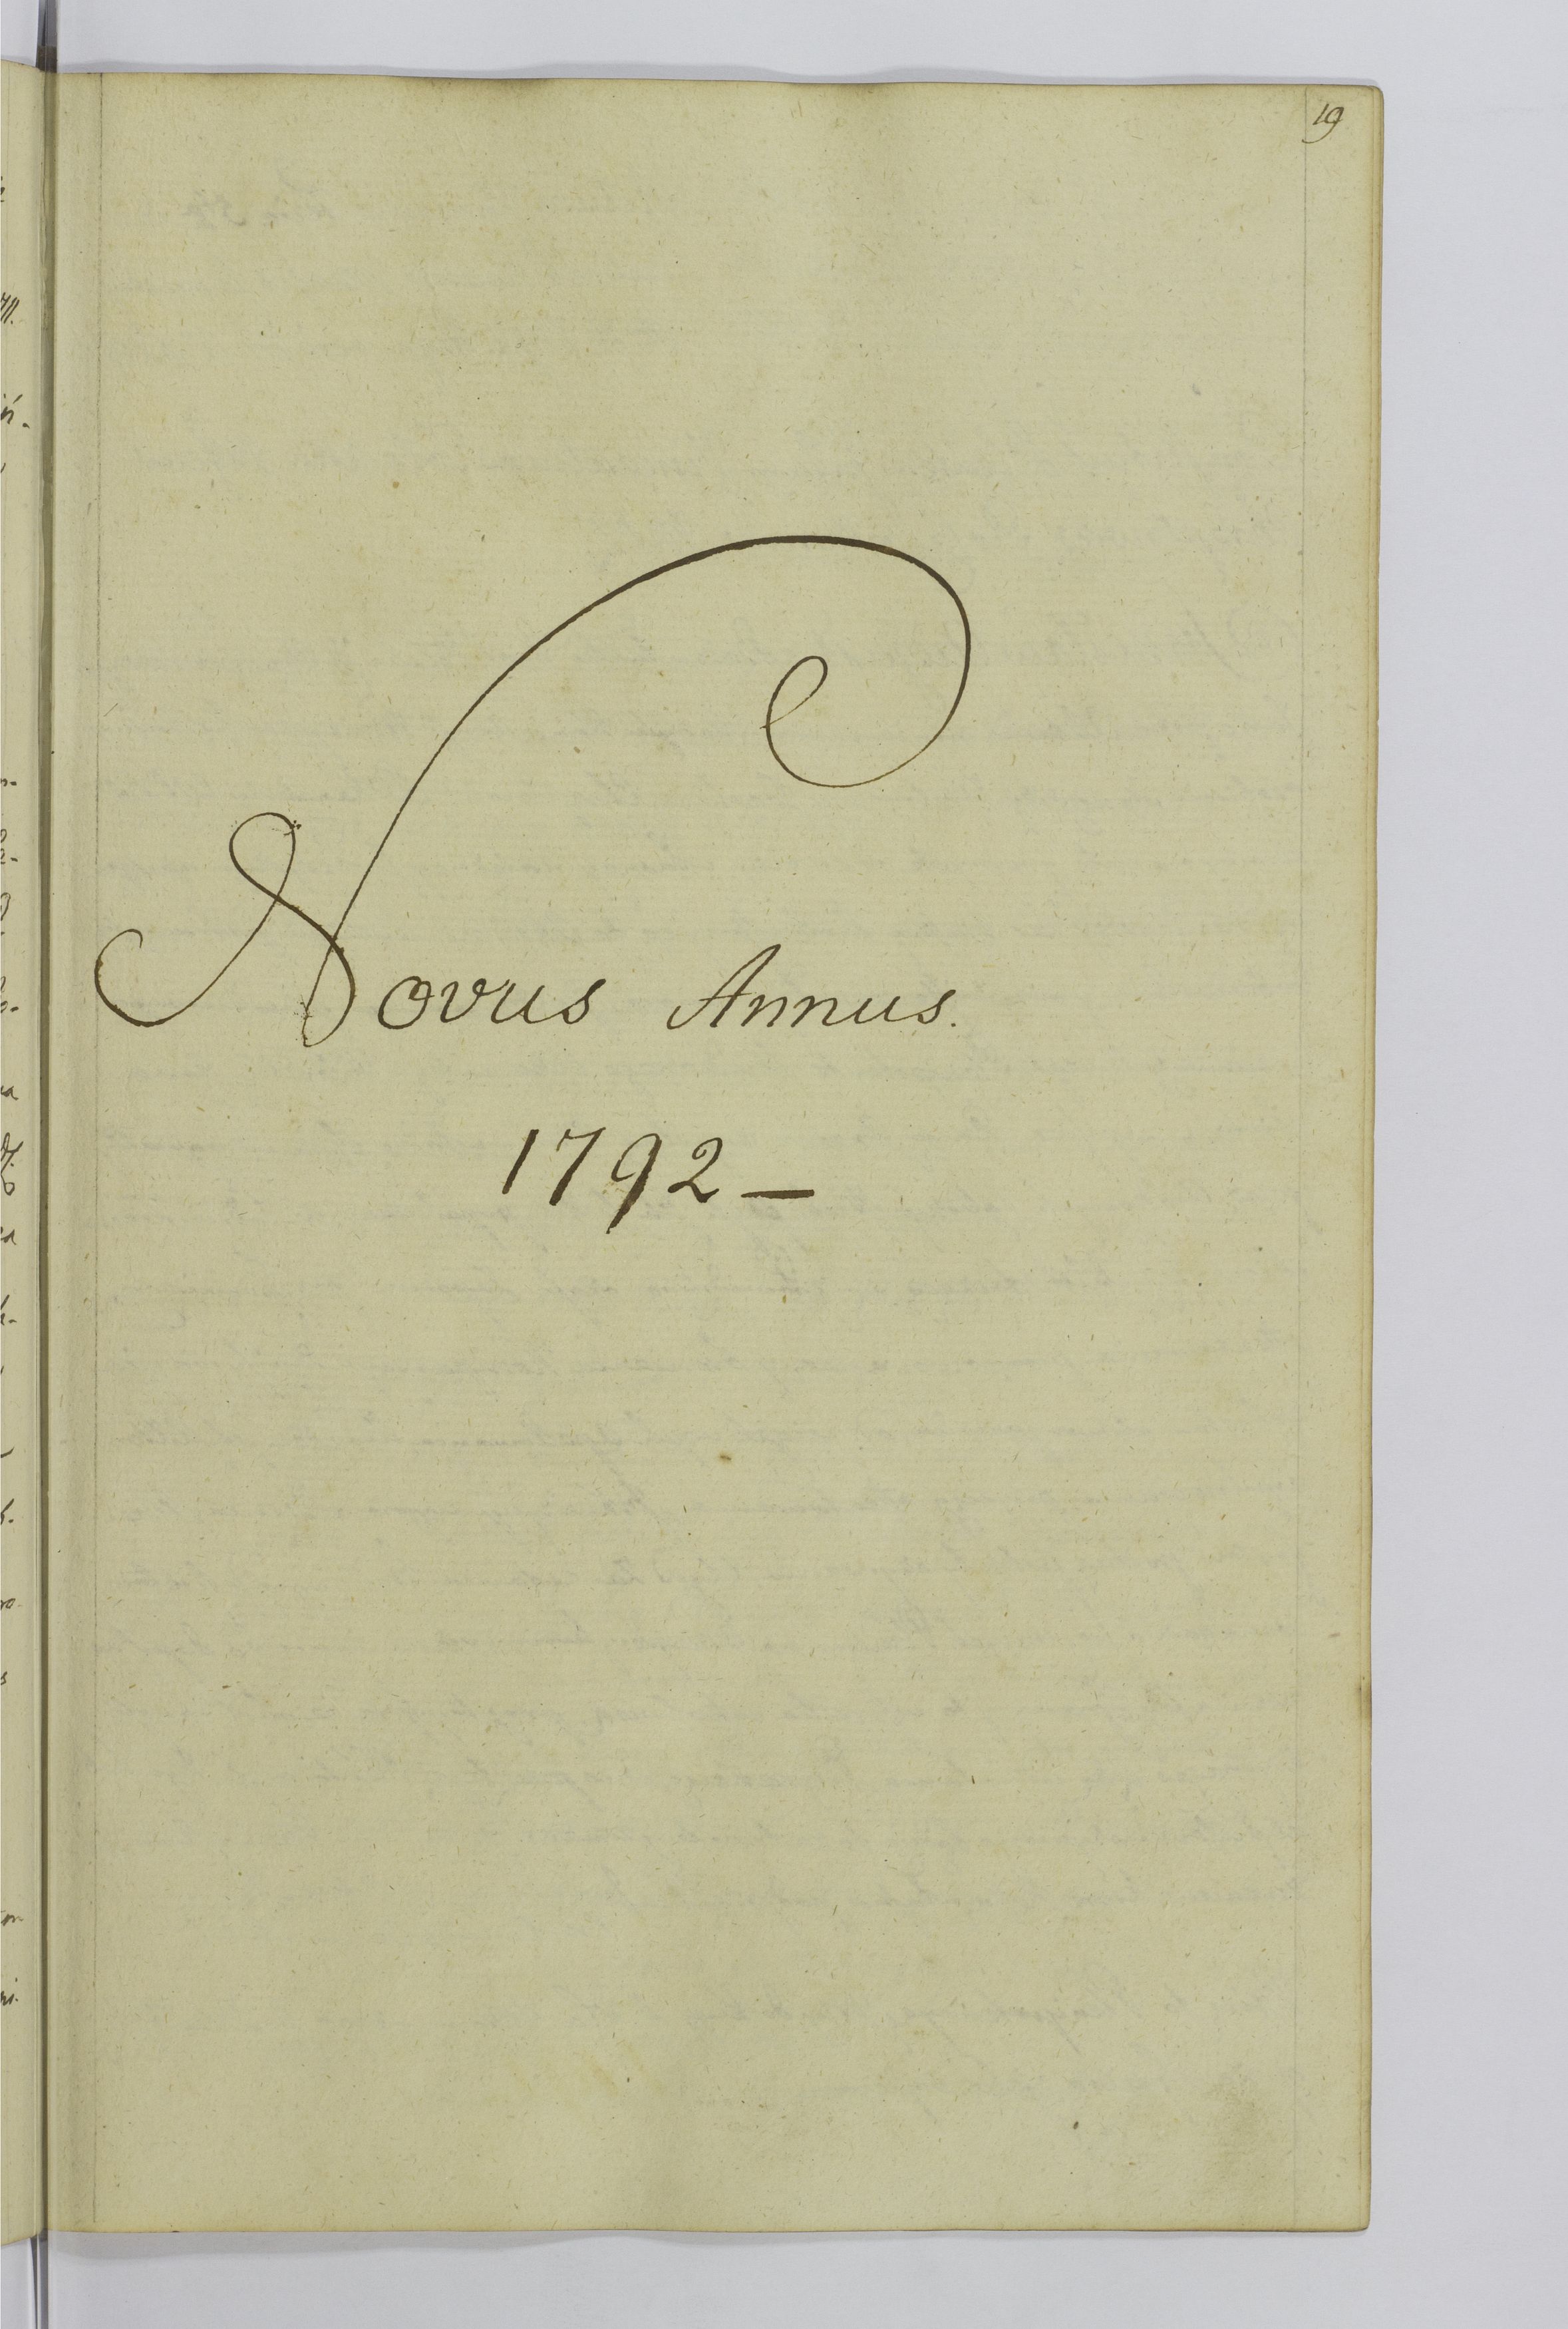 19
Novus Annus.
1792 –